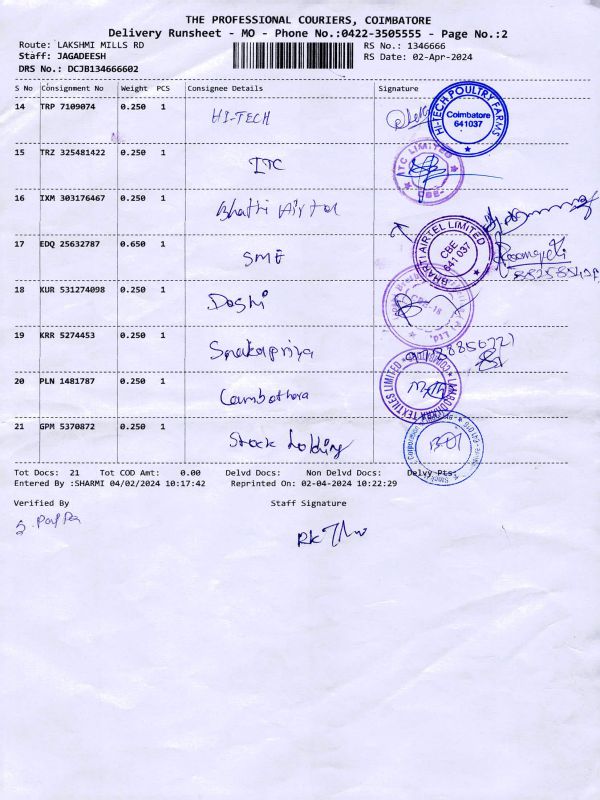 THE PROFESSIONAL COURIERS, COIMBATORE
Delivery Runsheet - MO - Phone No.:0422-3505555 - Page No.:2
Route: LAKSHMI MILLS RD RS No.: 1346666
Staff: JAGADEESH RS Date: 02-Apr-2024
DRS No.: DCJB134666602
S No Consignment No Weight PCS Consignee Details Signature
14 TRP 7109074 0.250 1 HI-TECH
HI-TECH POULTRY FARMS Coimbatore 641037
15 TRZ 325481422 0.250 1 ITC
ITC LIMITED CBE-
16 IXM 303176467 0.250 1 Bharti Airtel
17 EDQ 25632787 0.650 1 SME
BHARTI AIRTEL LIMITED CBE 641 037
18 KUR 531274098 0.250 1 Doshi
Ltd.
19 KRR 5274453 0.250 1
20 PLN 1481787 0.250 1
TEXTILES LIMITED
21 GPM 5370872 0.250 1 Stock holding
Tot Docs: 21 Tot COD Amt: 0.00 Delvd Docs: Non Delvd Docs: Delvy Pts:
Entered By :SHARMI 04/02/2024 10:17:42 Reprinted On: 02-04-2024 10:22:29
Verified By Staff Signature